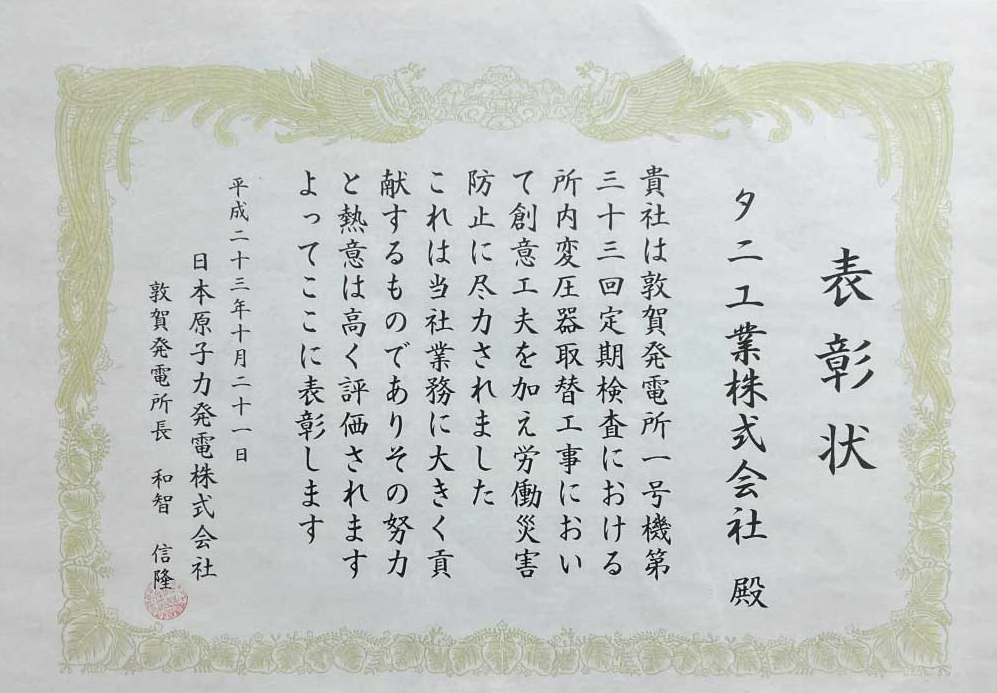 表彰状
タニエ業株式会社 殿
貴社は敦賀発電所一号機第
三十三回定期検査における
所内変圧器取替工事におい
て創意工夫を加え労働災害
防止に尽力されました
これは当社業務に大きく貢
献するものでありその努力
と熱意は高く評価されます
よってここに表彰します
平成二十三年十月二十一日
日本原子力発電株式会社
敦賀発電所長 和智 信隆